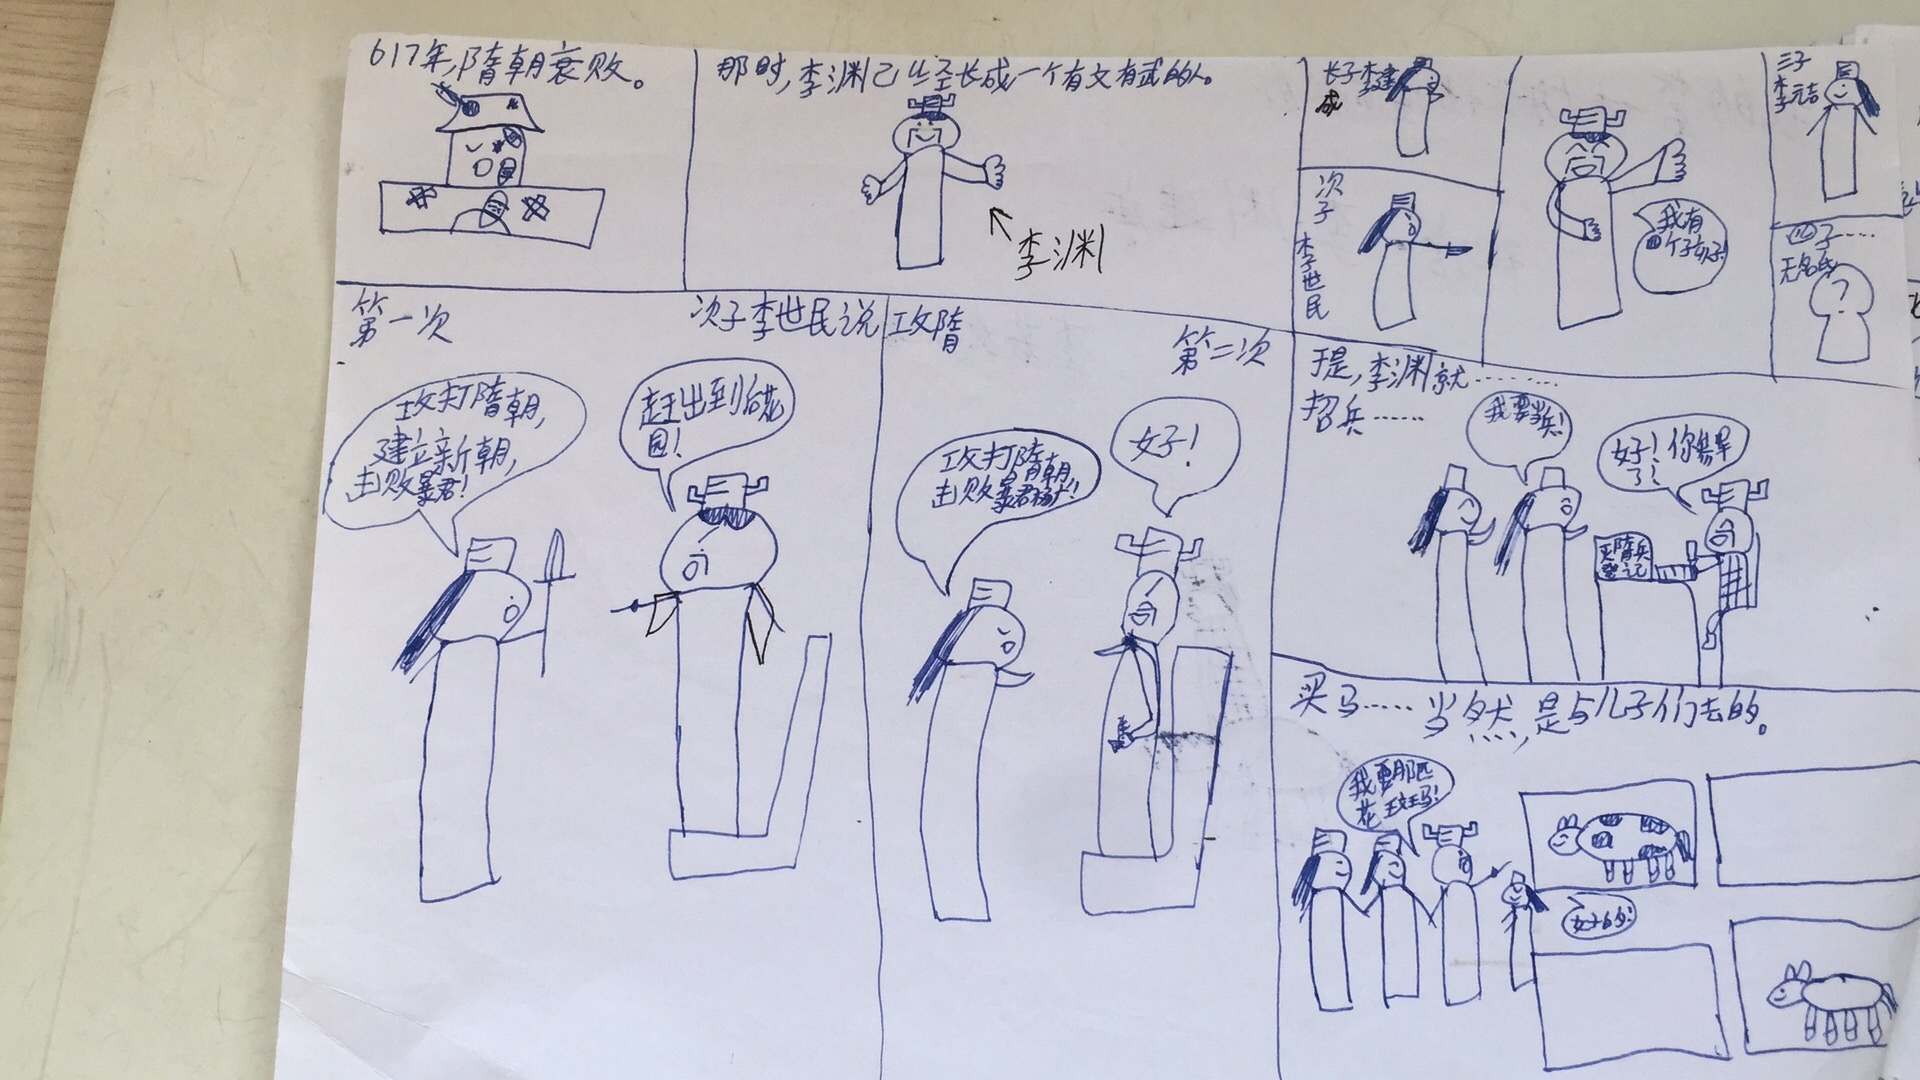 617年,隋朝衰败。
那时,李渊已经长成一个有文有武的人。
李渊
长子李建
成
次
子
李
世
民
我有
四个子
三子
李元吉
四子……
无名氏
?
第一次
次子李世民说攻隋
攻打隋朝,
建立新朝,
击败暴君!
赶出到后花
园!
第二次
攻打隋朝
击败暴君
好!
于是,李渊就………
招兵……
我要当兵!
好!你
了!
隋兵
登记
买马……当然,是与儿子们去的。
我要那匹
花斑马!
好的!